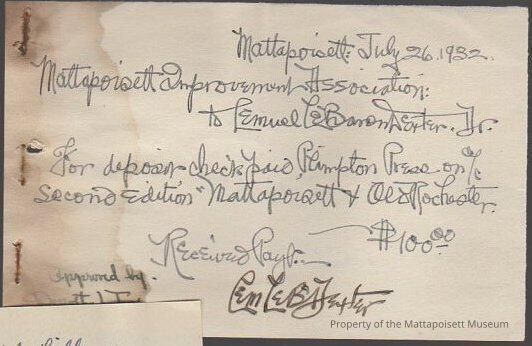 Mattapoisett: July 26. 1932.
Mattapoisett Improvement Association:
to Lemuel LeBaron Dexter. Dr.
For deposit check paid, Plimpton Press on a/c
Second Edition "Mattapoisett & Old Rochester.
$100.00
Received Payt.
approved by
Lem LeB Dexter
Property of the Mattapoisett Museum